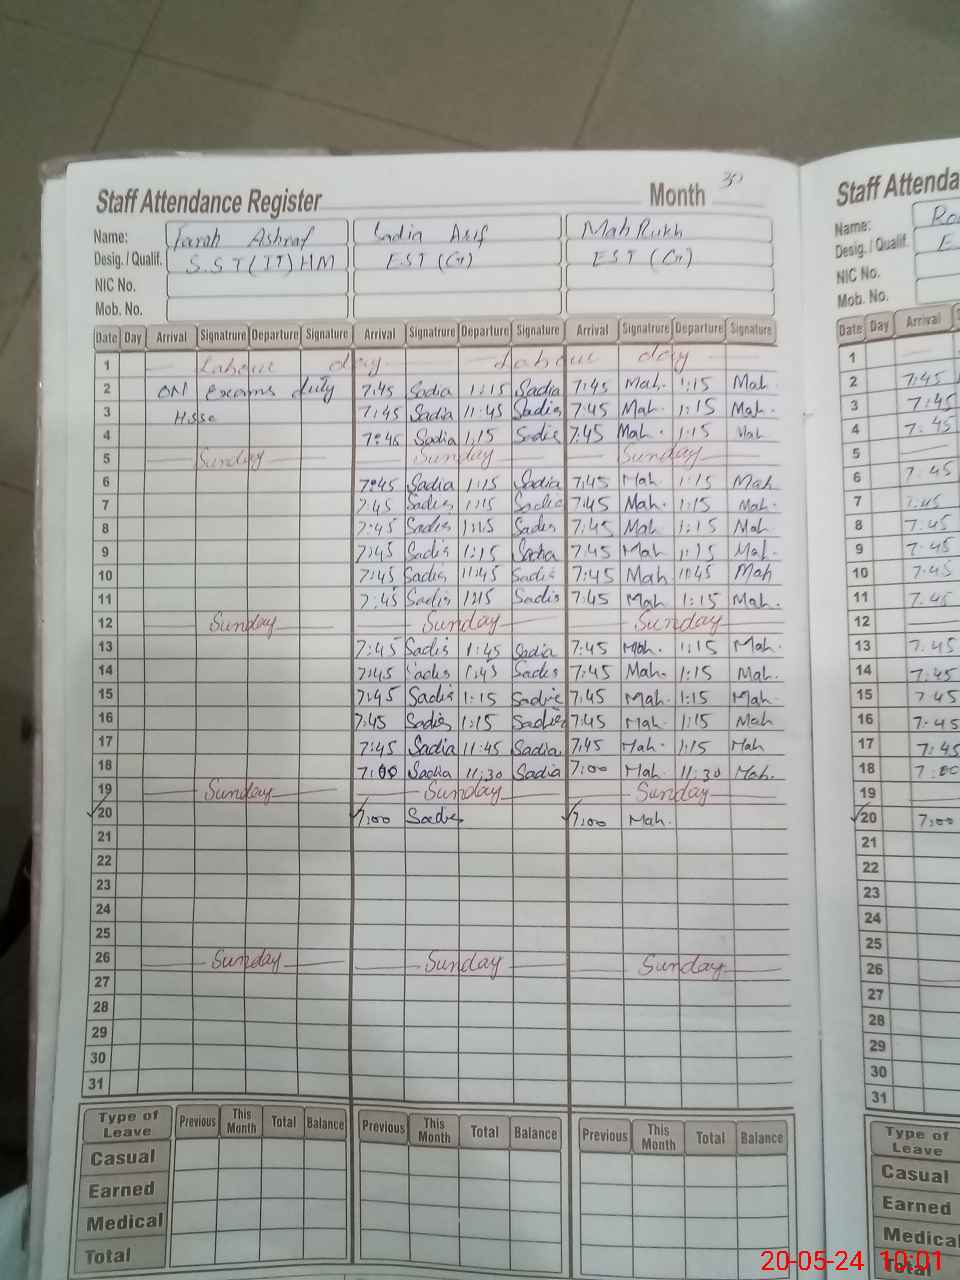 30
Staff Attendance Register Month
Name: Farah Ashraf Sadia Asif Mah Rukh
Desig. / Qualif. S.S.T(IT)HM EST (Gr) EST (Gr)
NIC No.
Mob. No.
Date Day Arrival Signatrure Departure Signature Arrival Signatrure Departure Signature Arrival Signatrure Departure Signature
1 Labour day Labour day
2 ON Exams duty 7:45 Sadia 1:15 Sadia 7:45 Mah. 1:15 Mah.
3 H.SSC 7:45 Sadia 11:45 Sadia 7:45 Mah. 1:15 Mah.
4 7:45 Sadia 1:15 Sadia 7:45 Mah. 1:15 Mah
5 Sunday Sunday Sunday
6 7:45 Sadia 1:15 Sadia 7:45 Mah. 1:15 Mah
7 7:45 Sadia 1:15 Sadia 7:45 Mah. 1:15 Mah.
8 7:45 Sadia 1:15 Sadia 7:45 Mah 1:15 Mah
9 7:45 Sadia 1:15 Sadia 7:45 Mah 1:15 Mah.
10 7:45 Sadia 11:45 Sadia 7:45 Mah 11:45 Mah
11 7:45 Sadia 1:15 Sadia 7:45 Mah 1:15 Mah.
12 Sunday Sunday Sunday
13 7:45 Sadia 1:45 Sadia 7:45 Mah. 1:15 Mah.
14 7:45 Sadia 1:45 Sadia 7:45 Mah. 1:15 Mah.
15 7:45 Sadia 1:15 Sadia 7:45 Mah. 1:15 Mah.
16 7:45 Sadia 1:15 Sadia 7:45 Mah. 1:15 Mah
17 7:45 Sadia 11:45 Sadia 7:45 Mah. 1:15 Mah
18 7:00 Sadia 11:30 Sadia 7:00 Mah. 11:30 Mah.
19 Sunday Sunday Sunday
20 7:00 Sadia 7:00 Mah.
21
22
23
24
25
26 Sunday Sunday Sunday
27
28
29
30
31
Type of Leave Previous This Month Total Balance Previous This Month Total Balance Previous This Month Total Balance
Casual
Earned
Medical
Total
Staff Attenda
Name:
Desig. / Qualif. E
NIC No.
Mob. No.
Date Day Arrival
1
2 7:45
3 7:45
4 7:45
5
6 7:45
7 7:45
8 7:45
9 7:45
10 7:45
11 7:45
12
13 7:45
14 7:45
15 7:45
16 7:45
17 7:45
18 7:00
19
20 7:00
21
22
23
24
25
26
27
28
29
30
31
Type of Leave
Casual
Earned
Medical
Total
20-05-24 10:01